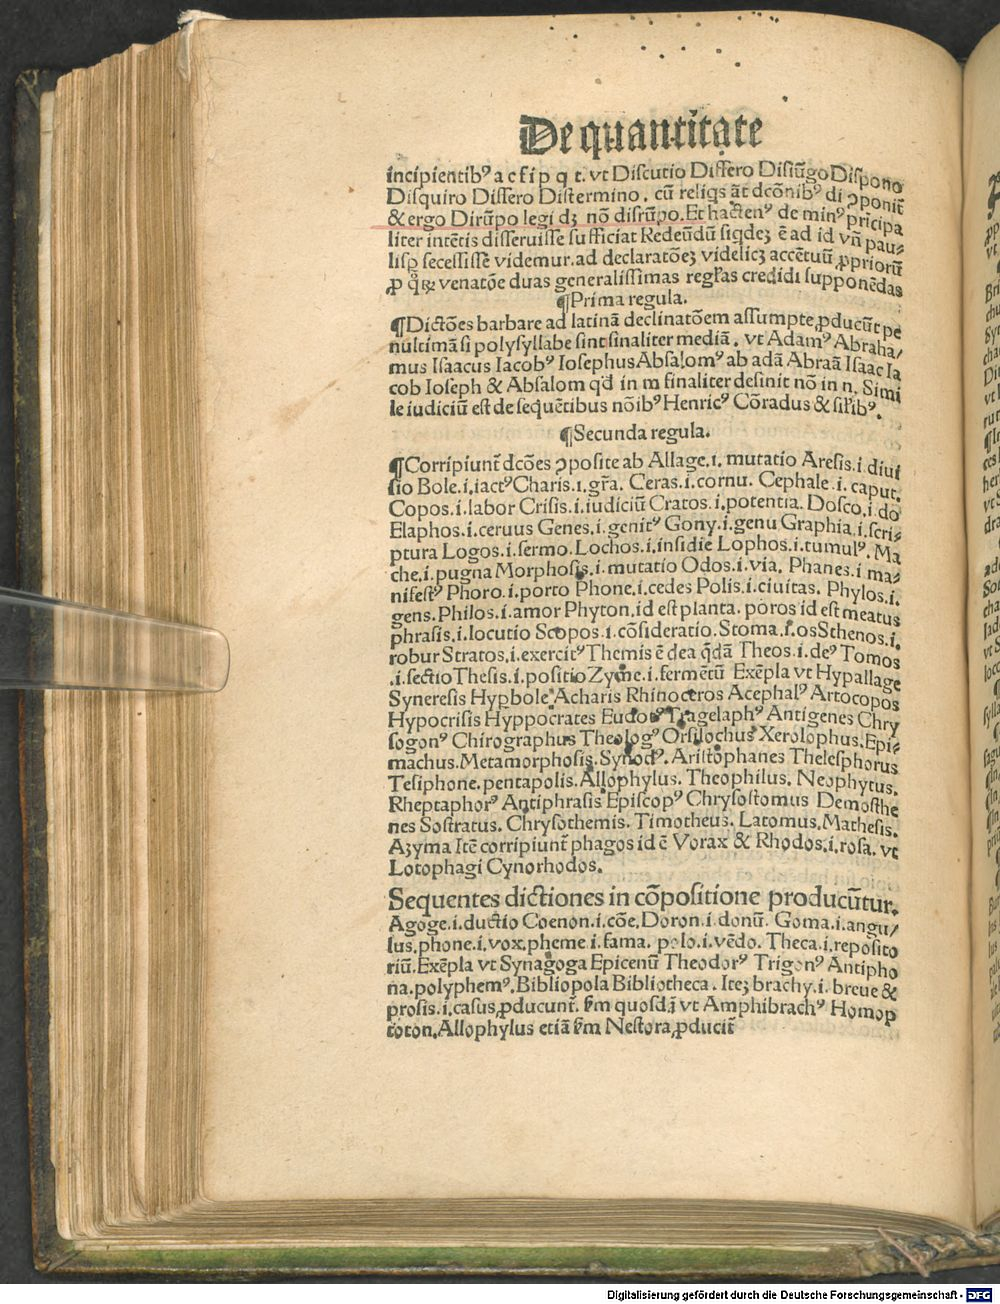 De quantitate
incipientibꝰ a c f i p q t. vt Discutio Differo Disiūgo Dispono
Disquiro Dissero Distermino. cū reliqs āt dcōnibꝰ di ꝯponit̄
& ergo Dirūpo legi dꝫ nō disrūpo. Et hactenꝰ de minꝰ pricipa
liter intētis disseruisse sufficiat Redeūdū siqdeꝫ ē ad id vn̄ pau⸗
lisꝑ secessisse videmur. ad declaratōeꝫ videlicꝫ accētuū ꝓpriorū
ꝓ venatōe duas generalissimas reglas credidi supponēdas
¶Prima regula.
¶Dictōes barbare ad latinā declinatōem assumpte ꝓducūt pe
nultimā si polysyllabe sint finaliter mediā. vt Adamꝰ Abraha/
mus Isaacus Iacobꝰ Iosephus Absalomꝰ ab adā Abraā Isaac Ia
cob Ioseph & Absalom qd in m finaliter definit nō in n. Simi
le iudiciū est de sequētibus nōibꝰ Henricꝰ Cōradus & silibꝰ.
¶Secunda regula.
¶Corripiunt̄ dcōes ꝯposite ab Allage.i. mutatio Aresis.i. diui
sio Bole.i. iactꝰ Charis.i. gr̄a. Ceras.i. cornu. Cephale.i. caput.
Copos.i. labor Crisis.i. iudiciū Cratos.i. potentia. Dosco.i. do
Elaphos.i. ceruus Genes.i. genitꝰ Gony.i. genu Graphia.i. scri⸗
ptura Logos.i. sermo. Lochos.i. insidie Lophos.i. tumulꝰ. Ma
che.i. pugna Morphosis.i. mutatio Odos.i. via. Phanes.i. ma⸗
nifestꝰ Phoro.i. porto Phone.i. cedes Polis.i. ciuitas. Phylos.i.
gens. Philos.i. amor Phyton. id est planta. poros id est meatus
phrasis.i. locutio Scopos.i. cōsideratio. Stoma.i. os Sthenos.i.
robur Stratos.i. exercitꝰ Themis ē dea q̄dā Theos.i. deꝰ Tomos
.i. sectio Thesis.i. positio Zyme.i. fermētū Exēpla vt Hypallage
Syneresis Hypbole Acharis Rhinoceros Acephalꝰ Artocopos
Hypocrisis Hyppocrates Eudoxꝰ Tragelaphꝰ Antigenes Chry
sogonꝰ Chirographus Theologꝰ Orsilochus Xerolophus. Epi⸗
machus. Metamorphosis. Synodꝰ. Aristophanes Thelesphorus
Tesiphone. pentapolis. Allophylus. Theophilus. Neophytus.
Rheptaphorꝰ Antiphrasis Episcopꝰ Chrysostomus Demosthe
nes Sostratus. Chrysothemis. Timotheus. Latomus. Mathesis.
Azyma Itē corripiunt̄ phagos id ē Vorax & Rhodos.i. rosa. vt
Lotophagi Cynorhodos.
Sequentes dictiones in cōpositione producūtur.
Agoge.i. ductio Coenon.i. cōe. Doron.i. donū. Goma.i. angu/
lus. phone.i. vox. pheme.i. fama. polo.i. vēdo. Theca.i. reposito
riū. Exēpla vt Synagoga Epicenū Theodorꝰ Trigonꝰ Antipho
na. polyphemꝰ. Bibliopola Bibliotheca. Iteꝫ brachy.i. breue &
prosis.i. casus ꝓducunt̄. sm quosdā vt Amphibrachꝰ Homop
toton. Allophylus etiā sm Nestora ꝓducit̄
Digitalisierung gefördert durch die Deutsche Forschungsgemeinschaft - DFG